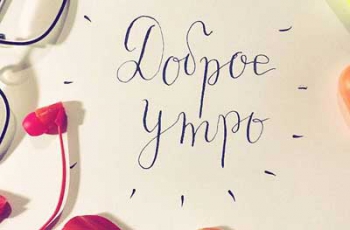 Доброе
утро